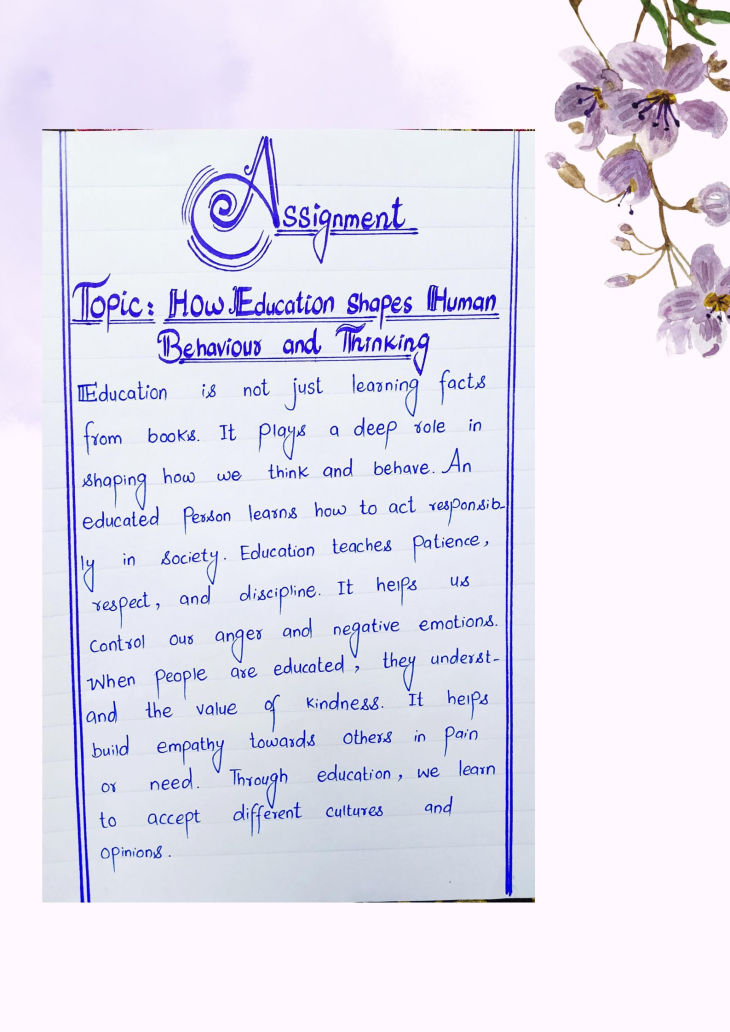 Assignment
Topic: How Education shapes Human
Behaviour and Thinking
Education is not just learning facts
from books. It plays a deep role in
shaping how we think and behave. An
educated Person learns how to act responsib-
ly in society. Education teaches Patience,
respect, and discipline. It helps us
control our anger and negative emotions.
When People are educated, they underst-
and the value of kindness. It helps
build empathy towards others in Pain
or need. Through education, we learn
to accept different cultures and
opinions.